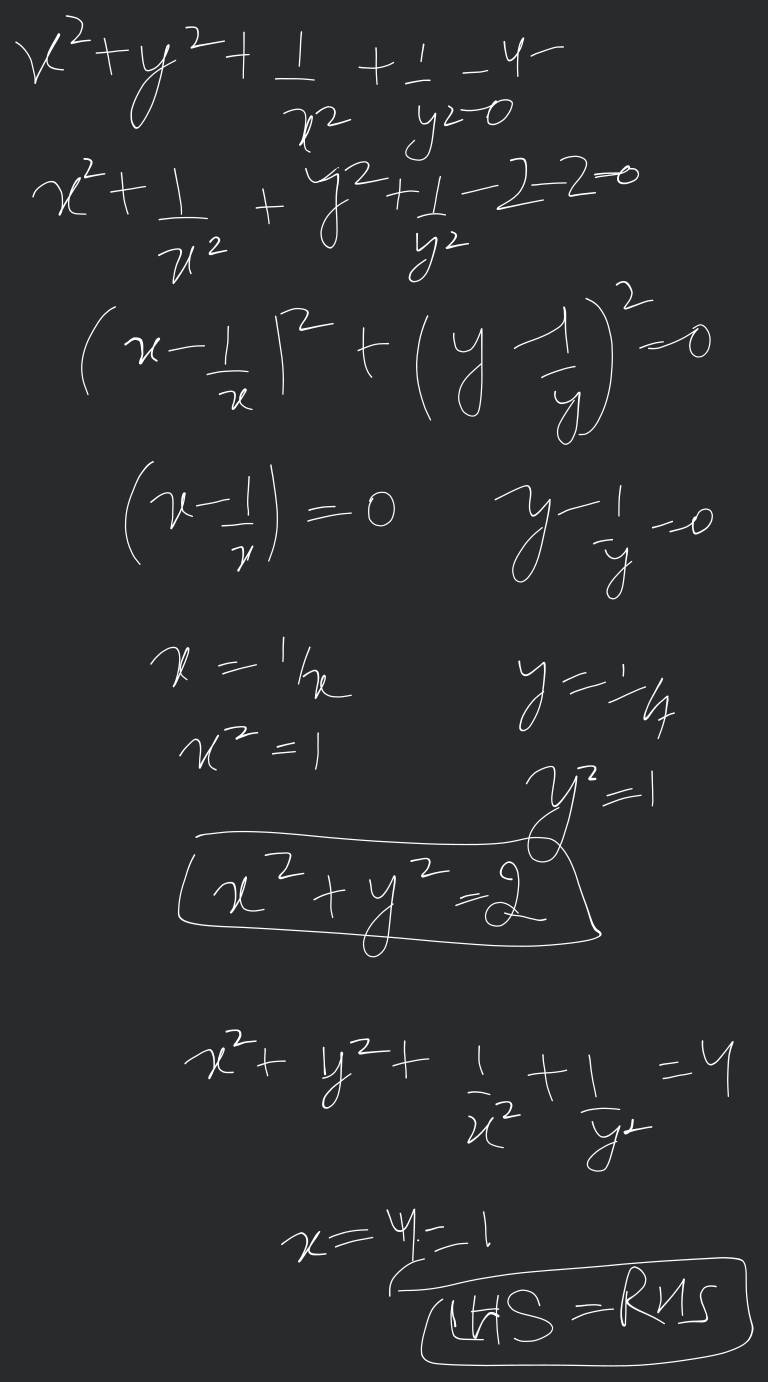 x² + y² + 1/x² + 1/y² - 4 = 0
x² + 1/x² + y² + 1/y² - 2 - 2 = 0
(x - 1/x)² + (y - 1/y)² = 0
(x - 1/x) = 0 y - 1/y = 0
x = 1/x y = 1/y
x² = 1
y² = 1
x² + y² = 2
x² + y² + 1/x² + 1/y² = 4
x = y = 1
LHS = RHS